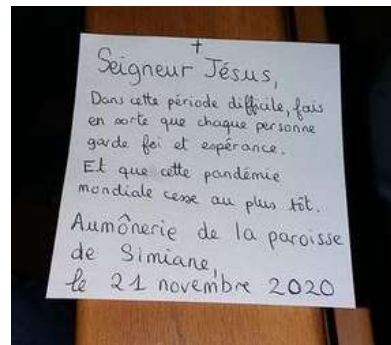 Seigneur Jésus,
Dans cette période difficile, fais
en sorte que chaque personne
garde foi et espérance.
Et que cette pandémie
mondiale cesse au plus tôt.
Aumônerie de la paroisse
de Simiane,
le 21 novembre 2020